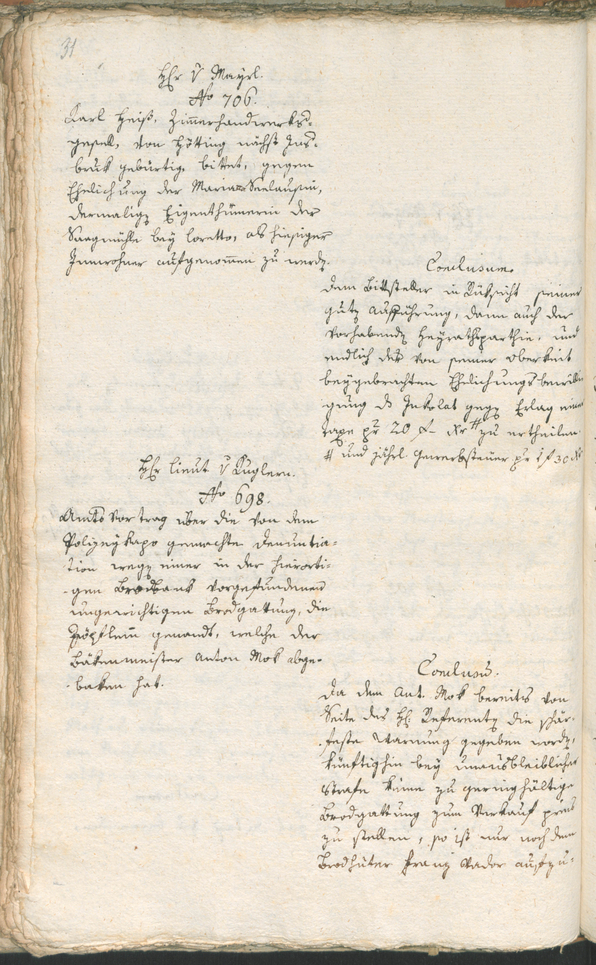 31
H&r v Mayrl.
No 706.
Karl Heiß, Zimmerhandwerks¬
gesell, von Hötting nächst Ins¬
bruk gebürtig, bittet, gegen
Ehelichung der Maria
dermalig Eigenthümerin der
Saagmühle bey Loretto, als hiesiger
Innwohner aufgenommen zu werdn.
Conclusum.
dem Bittsteller in Rüksicht seiner
gutn Aufführung, dann auch der
vorhabendn Heyrathsparthie, und
endlich der von seiner Oberkeit
beygebrachten Ehelichungsbewilli
gung ds Inkolat gegn Erlag einer
Taxe pr 20 f Xr # zu ertheilen
# und jährl Gewerbsteuer pr 1 f 30 Xr
H&r Lieut v Kuglern.
No 698.
Amts Vortrag über die von dem
Polizeykapo gemachte Denuntia¬
tion wegn einer in der hierorti¬
gen Brodbank vorgefundenen
ungewichtigen Brodgattung, die
Zöpflein genandt, welche der
Bäkenmeister Anton Mok abge¬
baken hat.
Conclusū.
Da dem Ant. Mok bereits von
Seite des H: Referentn die schär¬
feste Warnung gegeben wordn,
künftighin bey unausbleiblicher
Strafe keine zu geringhältige
Brodgattung zum Verkauf preis
zu stellen, so ist nur noch dem
Brodhüter Franz Vador aufzu¬